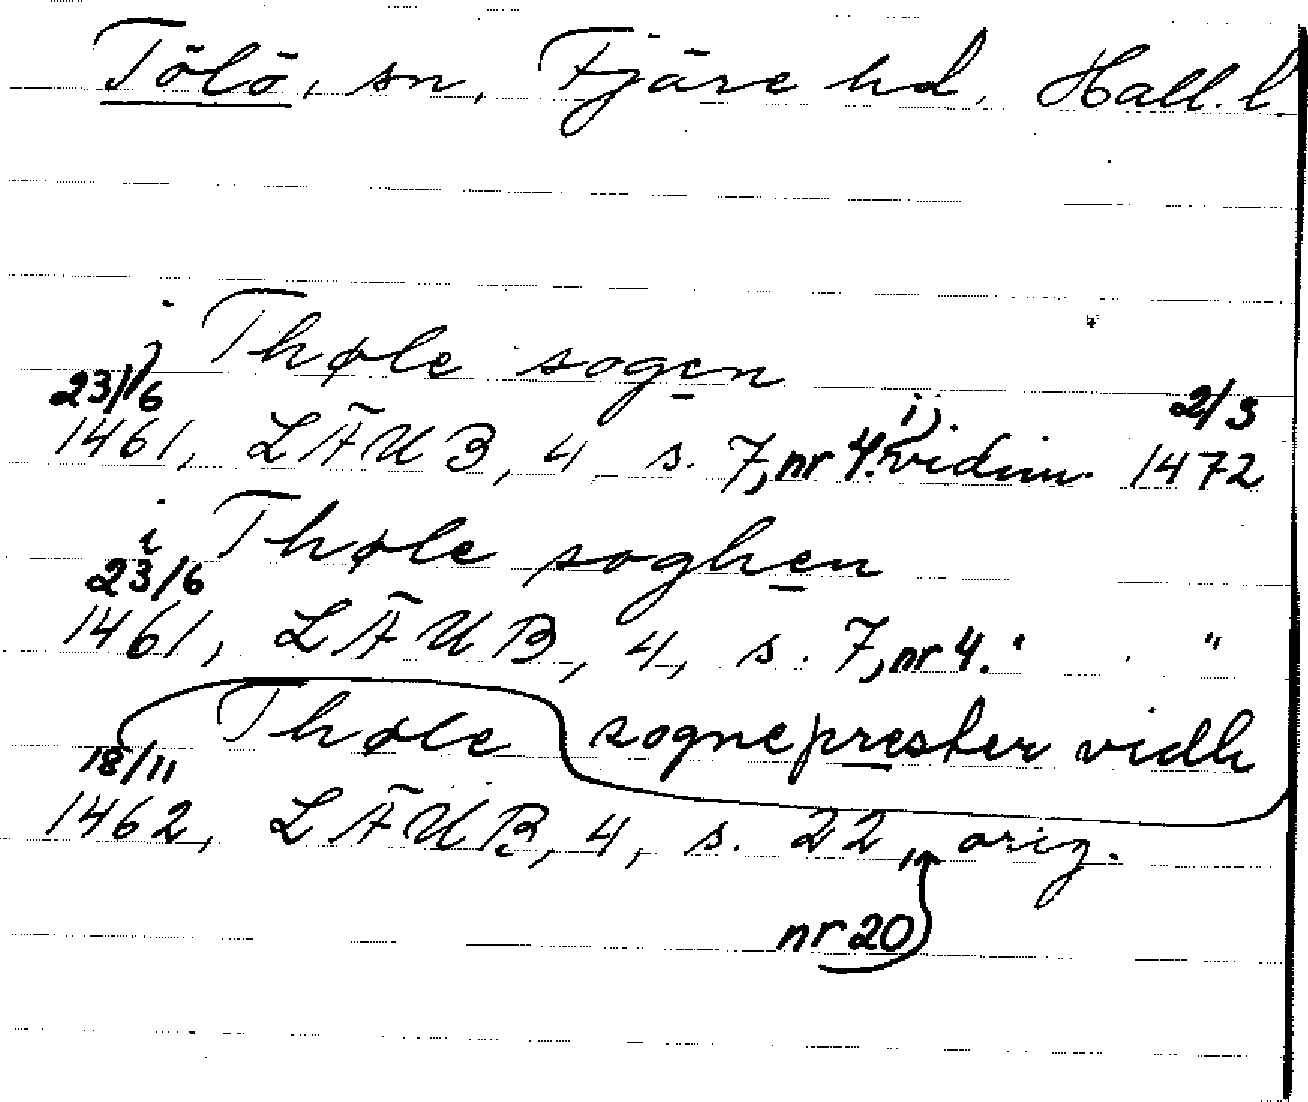 Tölö, sn, Fjäre hd, Hall. l.
i Thøle sogen
23/6 2/3
1461, LÄUB, 4 s. 7, nr 4. i) vidim. 1472
i Thøle soghen
23/6
1461, LÄUB, 4, s. 7, nr 4. " "
Thøle sogneprester vidh
18/11
1462, LÄUB, 4, s. 22, orig.
nr 20